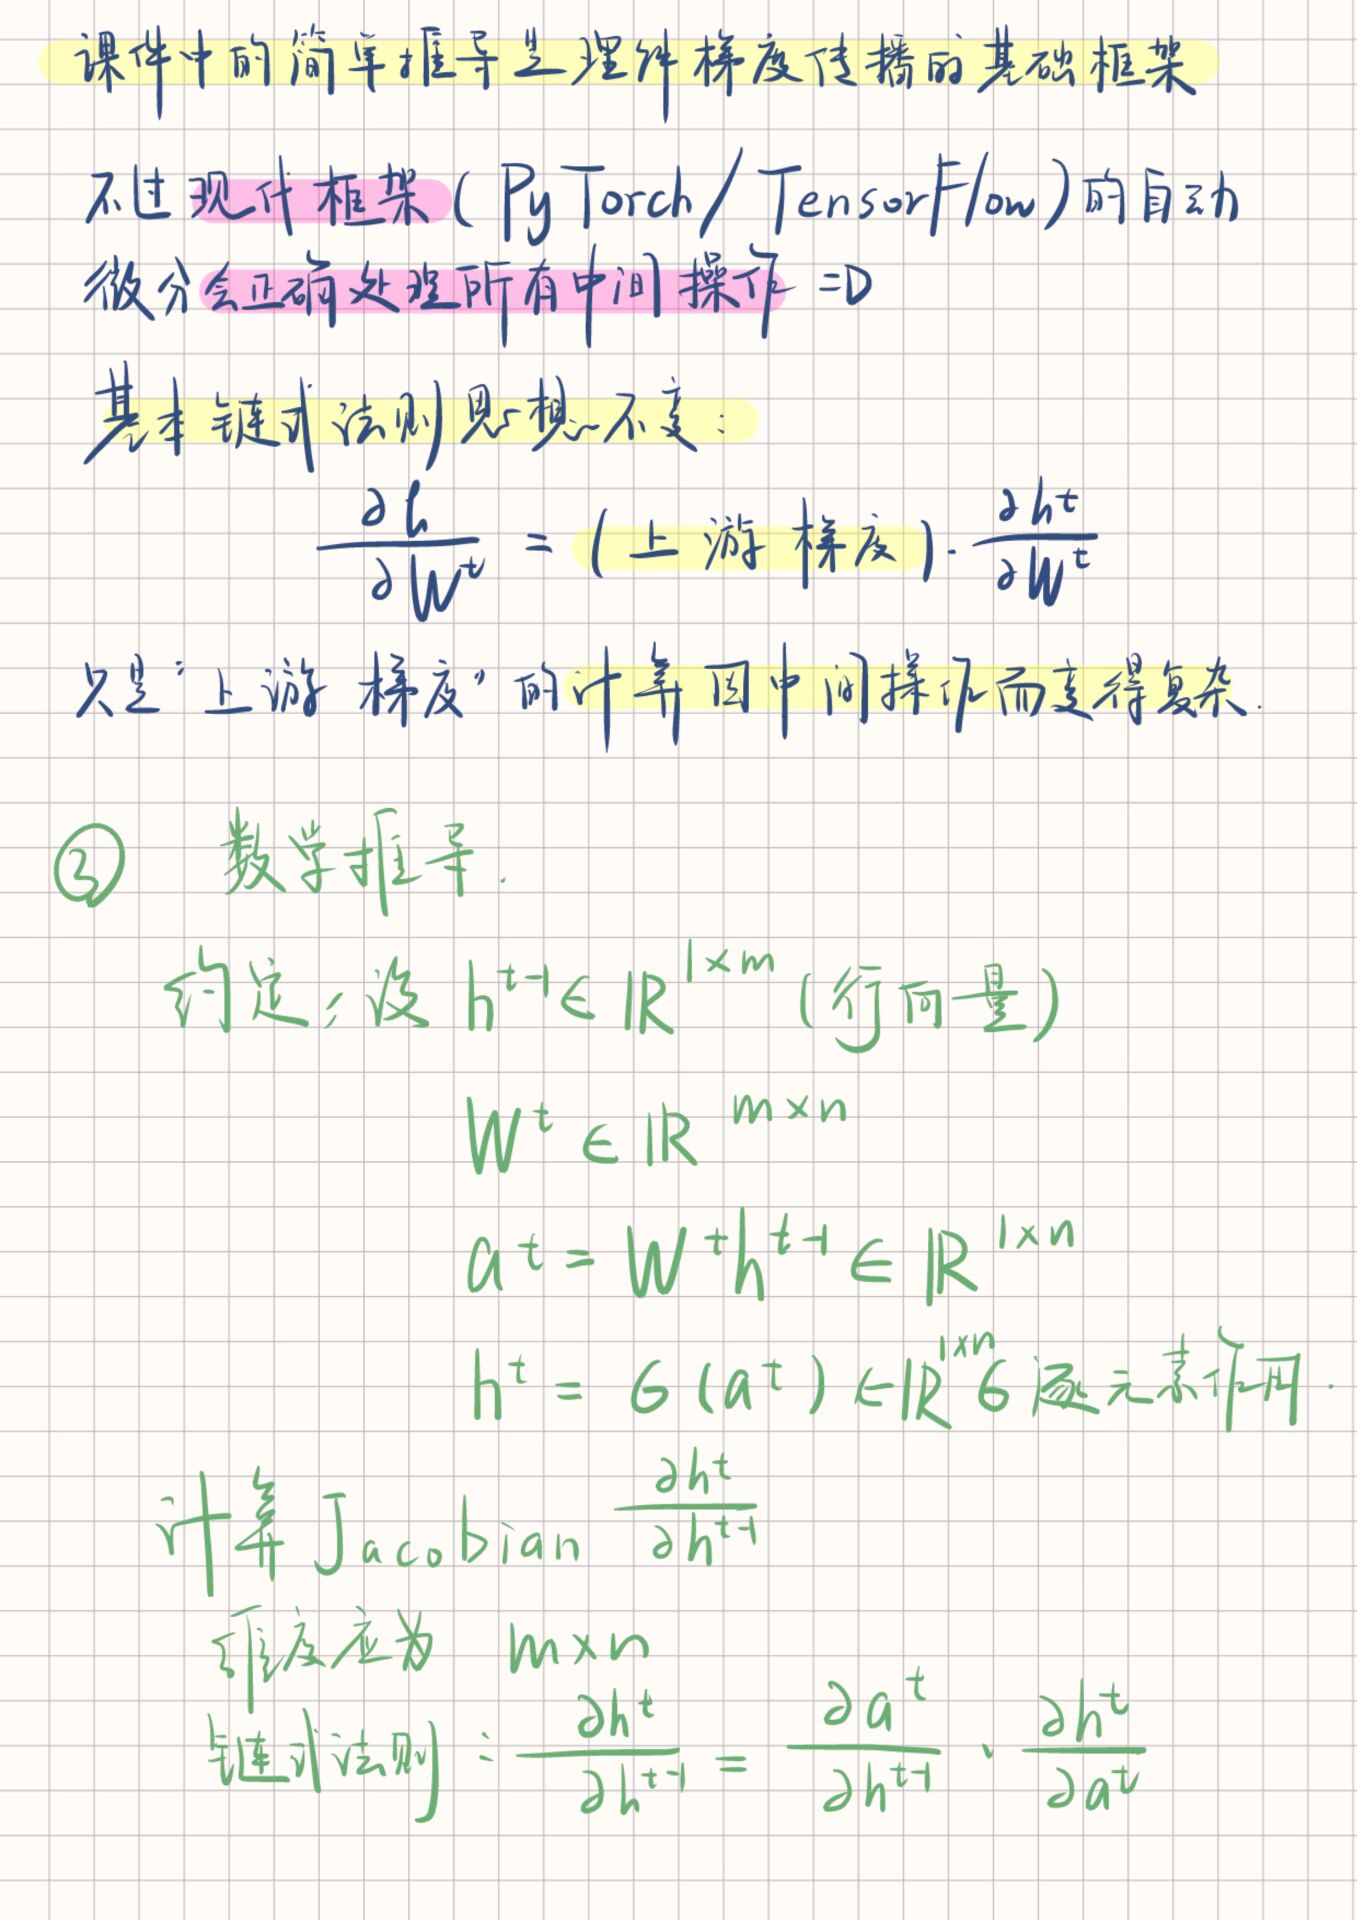 课件中的简单推导是理解梯度传播的基础框架
不过现代框架(PyTorch/TensorFlow)的自动
微分会正确处理所有中间操作 =D
基本链式法则思想不变:
∂h/∂W^t = (上游梯度)·∂h^t/∂W^t
只是"上游梯度"的计算因中间操作而变得复杂.
③ 数学推导.
约定:设 h^{t-1} ∈ ℝ^{1×m} (行向量)
W^t ∈ ℝ^{m×n}
a^t = W^t h^{t-1} ∈ ℝ^{1×n}
h^t = 6(a^t) ∈ ℝ^{1×n} 6逐元素作用.
计算 Jacobian ∂h^t/∂h^{t-1}
维度应为 m×n
链式法则: ∂h^t/∂h^{t-1} = ∂a^t/∂h^{t-1} · ∂h^t/∂a^t